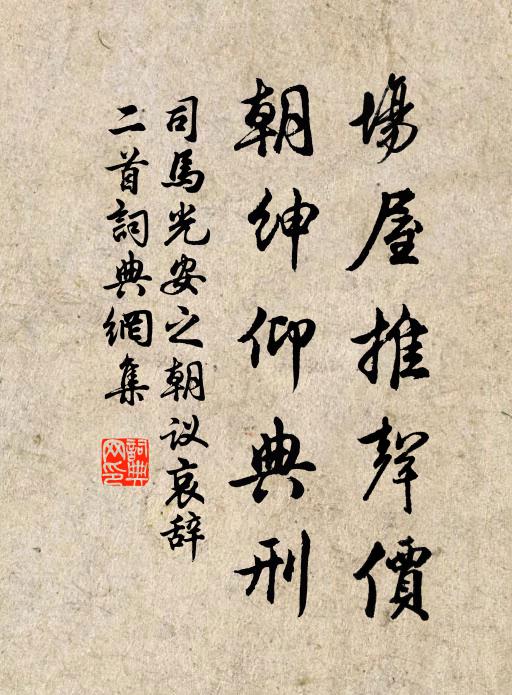 場屋推聲價
朝紳仰典刑
司馬光安之朝议哀辞
二首詞典網集
詞典网印